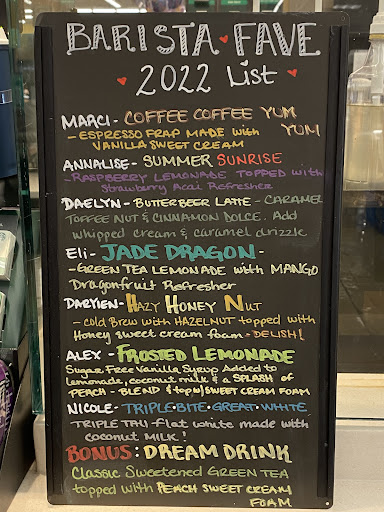 BARISTA FAVE
2022 List
MARCI - COFFEE COFFEE YUM
- ESPRESSO FRAP MADE with YUM
VANILLA SWEET CREAM
ANNALISE - SUMMER SUNRISE
- RASPBERRY LEMONADE TOPPED with
Strawberry Acai Refresher
DAELYN - BUTTERBEER LATTE - CARAMEL
TOFFEE NUT & CINNAMON DOLCE. Add
whipped cream & caramel drizzle
Eli - JADE DRAGON -
- GREEN TEA LEMONADE with MANGO
Dragonfruit Refresher
DARYIEN - HAZY HONEY NUT
- cold Brew with HAZELNUT topped with
Honey sweet cream foam - DELISH!
ALEX - FROSTED LEMONADE
Sugar Free Vanilla Syrup Added to
Lemonade, coconut milk & a SPLASH OF
PEACH - BLEND & top w/ SWEET CREAM FOAM
NICOLE - TRIPLE·BITE·GREAT·WHITE
TRIPLE THU flat white made with
coconut MILK!
BONUS: DREAM DRINK
Classic Sweetened GREEN TEA
topped with PEACH SWEET CREAM
FOAM